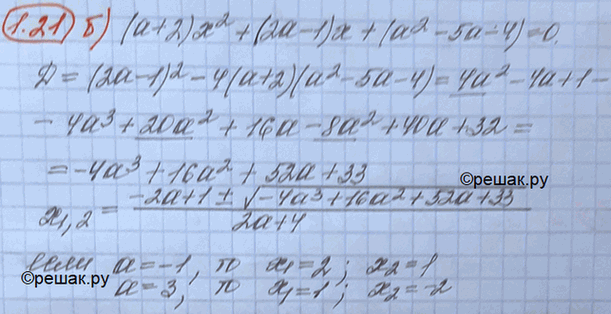 1.21) б) (a+2)x² + (2a-1)x + (a² - 5a - 4) = 0.
D = (2a-1)² - 4(a+2)(a² - 5a - 4) = 4a² - 4a + 1 -
- 4a³ + 20a² + 16a - 8a² + 40a + 32 =
= -4a³ + 16a² + 52a + 33
©решак.ру
x₁,₂ = (-2a + 1 ± √(-4a³ + 16a² + 52a + 33)) / (2a + 4)
если a = -1, то x₁ = 2; x₂ = 1
©решак.ру
a = 3, то x₁ = 1; x₂ = -2